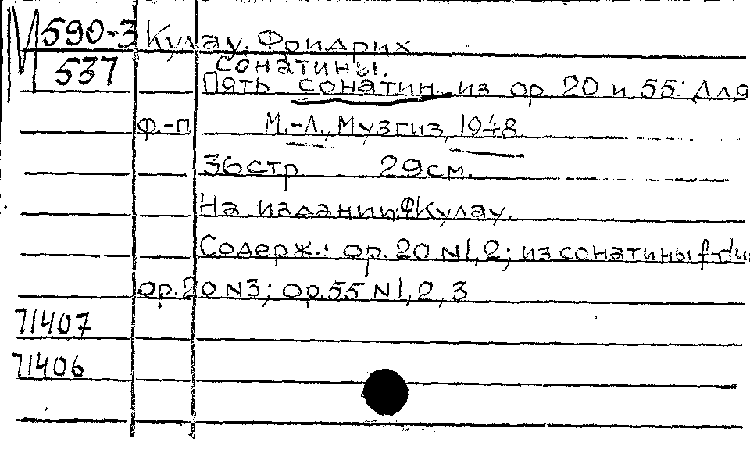 М 590-3 Кулау, Фридрих
537 Сонатины.
Пять сонатин из ор. 20 и 55: Для
ф.-п М.-Л., Музгиз, 1948
36стр 29см.
На издании: Ф Кулау.
Содерж.: ор. 20 N1, 2; из сонатины f-du
ор.20 N3; ор.55 N1, 2, 3
71407
71406